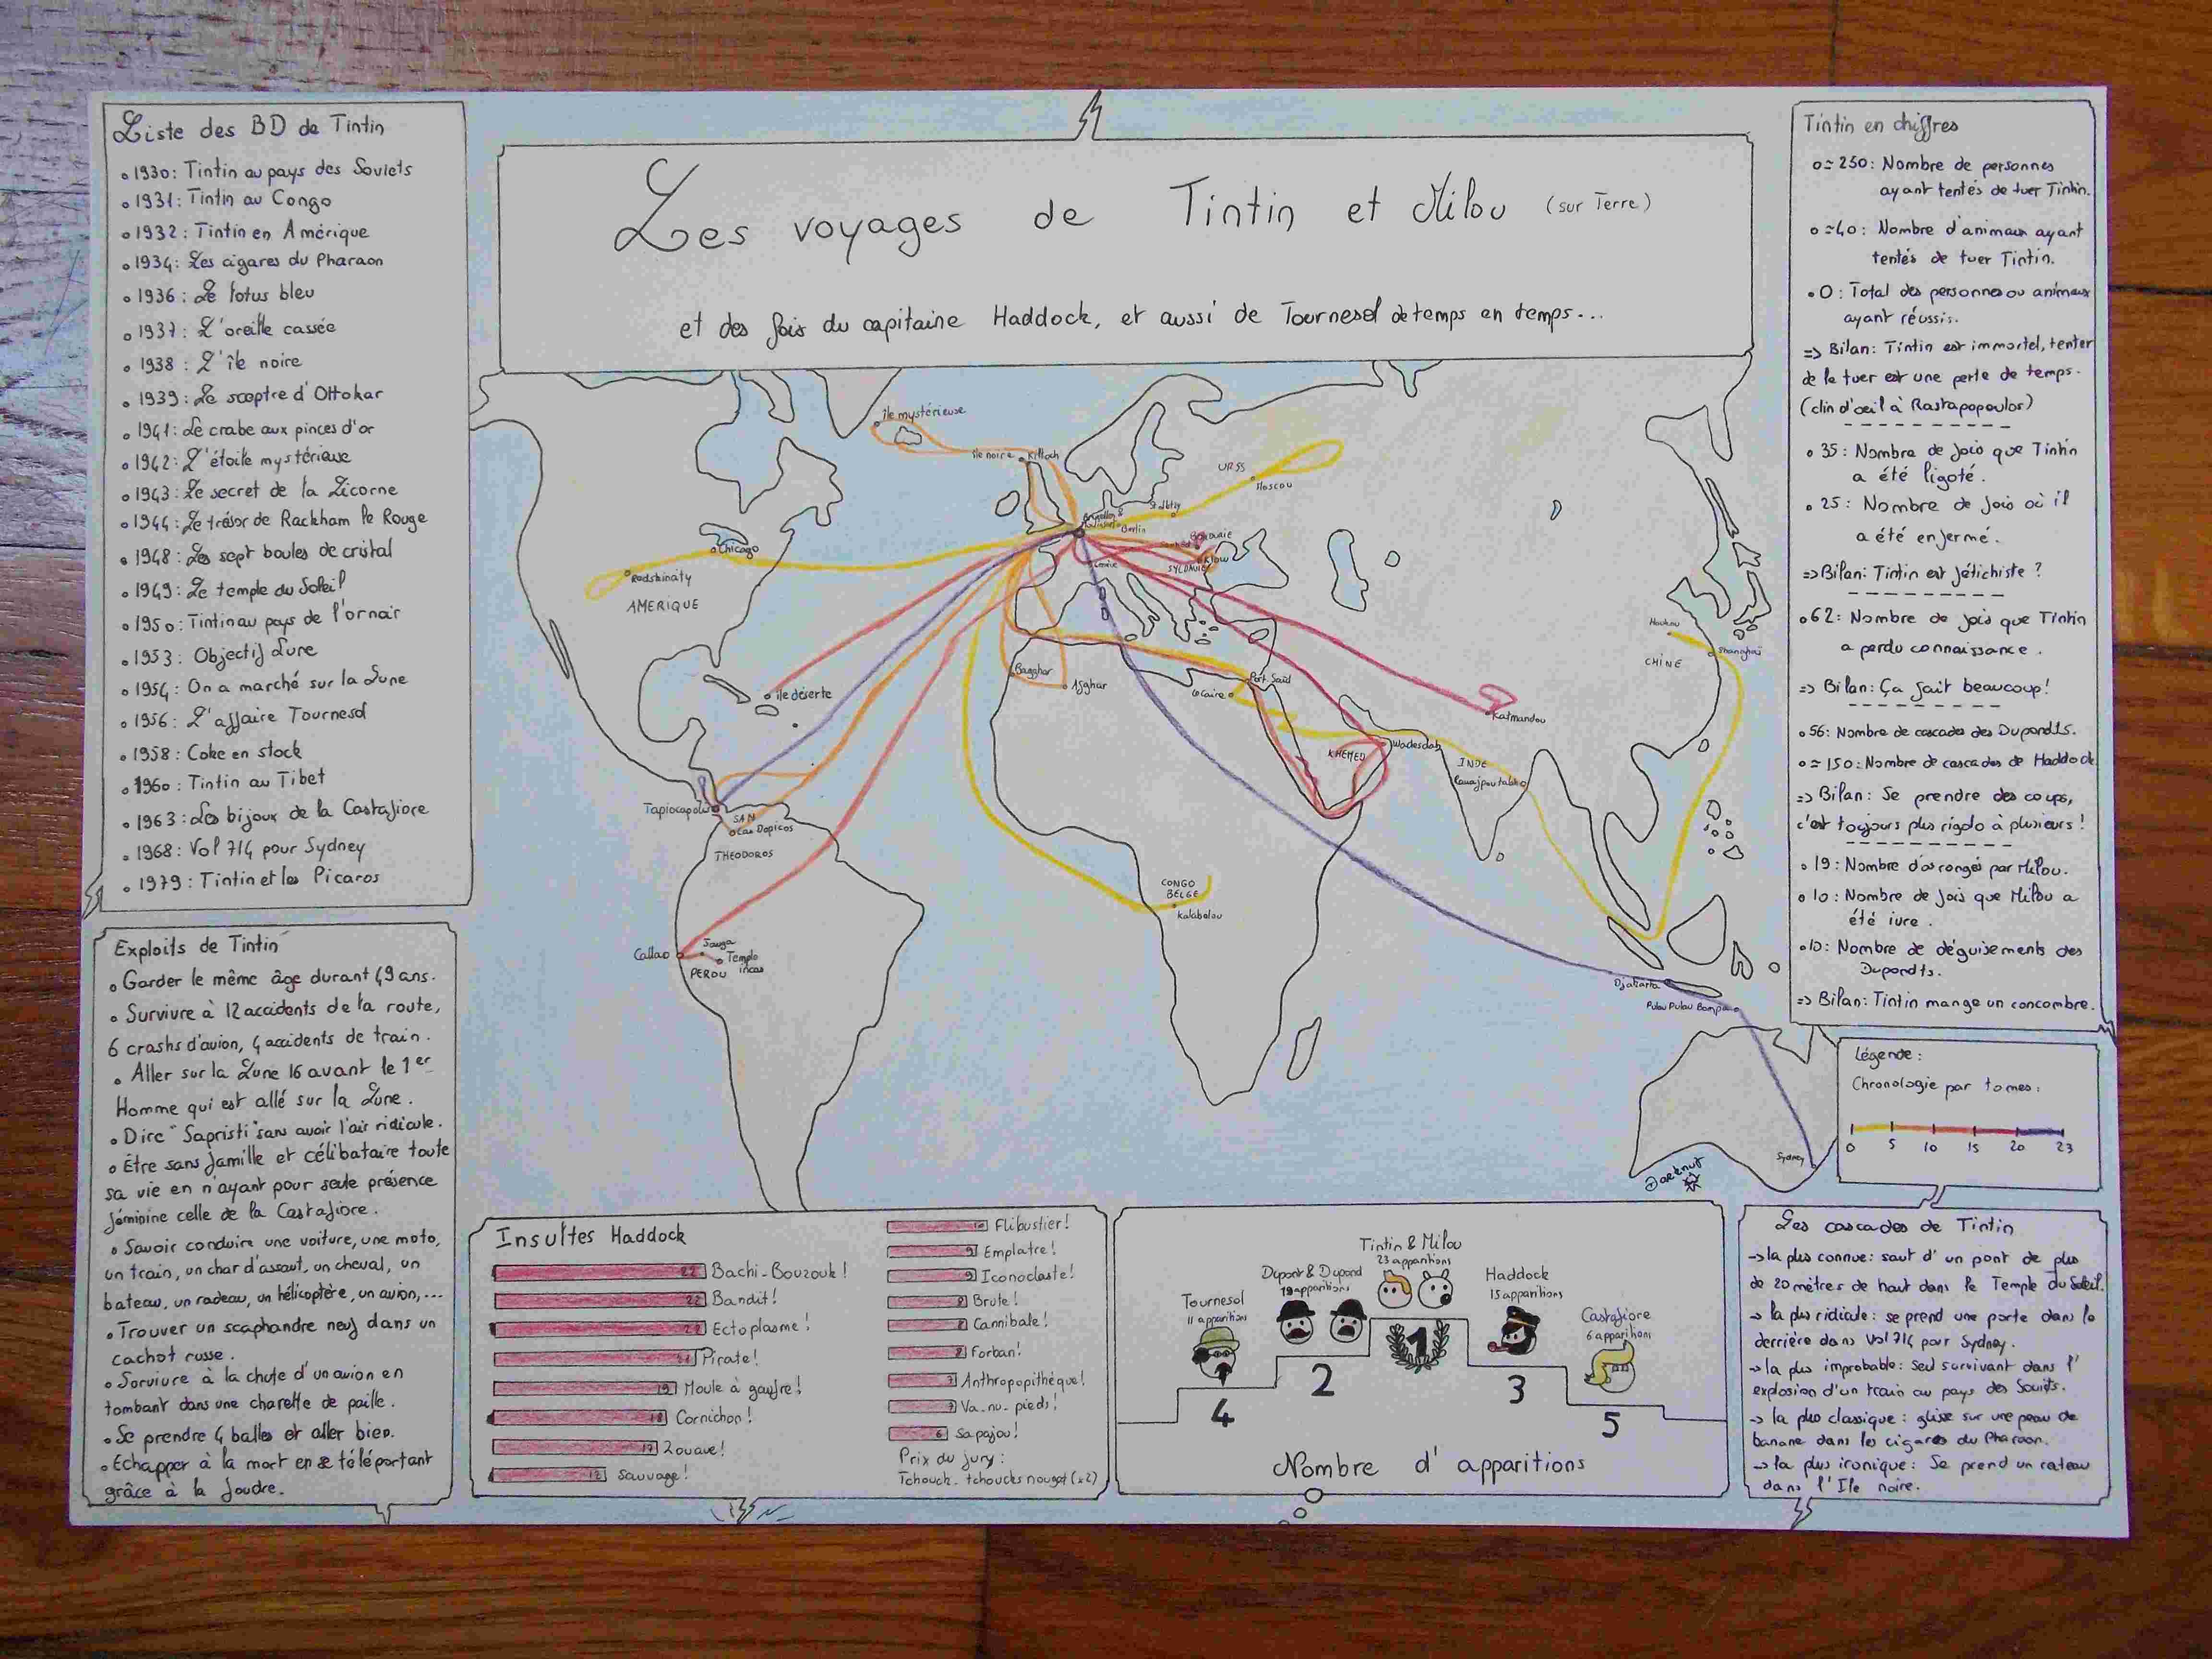 Liste des BD de Tintin
1930: Tintin au pays des Soviets
1931: Tintin au Congo
1932: Tintin en Amérique
1934: Les cigares du Pharaon
1936: Le lotus bleu
1937: L'oreille cassée
1938: L'île noire
1939: Le sceptre d'Ottokar
1941: Le crabe aux pinces d'or
1942: L'étoile mystérieuse
1943: Le secret de la Licorne
1944: Le trésor de Rackham le Rouge
1948: Les sept boules de cristal
1949: Le temple du Soleil
1950: Tintin au pays de l'or noir
1953: Objectif Lune
1954: On a marché sur la Lune
1956: L'affaire Tournesol
1958: Coke en stock
1960: Tintin au Tibet
1963: Les bijoux de la Castafiore
1968: Vol 714 pour Sydney
1979: Tintin et les Picaros
Exploits de Tintin
Garder le même âge durant 49 ans.
Survivre à 12 accidents de la route,
6 crashs d'avion, 4 accidents de train.
Aller sur la Lune 16 avant le 1er
Homme qui est allé sur la Lune.
Dire "Sapristi" sans avoir l'air ridicule.
Être sans famille et célibataire toute
sa vie en n'ayant pour seule présence
féminine celle de la Castafiore.
Savoir conduire une voiture, une moto,
un train, un char d'assaut, un cheval, un
bateau, un radeau, un hélicoptère, un avion,...
Trouver un scaphandre neuf dans un
cachot russe.
Survivre à la chute d'un avion en
tombant dans une charette de paille.
Se prendre 4 balles et aller bien.
Echapper à la mort en se téléportant
grâce à la foudre.
Les voyages de Tintin et Milou (sur Terre)
et des fois du capitaine Haddock, et aussi de Tournesol de temps en temps...
île mystérieuse
île noire
Kiltoch
URSS
Moscou
Bruxelles &
Berlin
BORDURIE
Klow
SYLDAVIE
Chicago
Redskincity
AMERIQUE
île déserte
Bagghar
Afghar
Le Caire
Port Saïd
KHEMED
Wadesdah
Katmandou
INDE
Rawajpoutalah
Houkou
Shanghaï
CHINE
Tapiocapolis
SAN
Las Dopicos
THEODOROS
CONGO
BELGE
Kalabelou
Callao
Jauga
Temple
incas
PEROU
Djakarta
Pulau Pulau Bompa
Sydney
Tintin en chiffres
≃ 250: Nombre de personnes
ayant tentés de tuer Tintin.
≃ 40: Nombre d'animaux ayant
tentés de tuer Tintin.
0: Total des personnes ou animaux
ayant réussis.
=> Bilan: Tintin est immortel, tenter
de le tuer est une perte de temps.
(clin d'œil à Rastapopoulos)
35: Nombre de fois que Tintin
a été ligoté.
25: Nombre de fois où il
a été enfermé.
=> Bilan: Tintin est fétichiste ?
62: Nombre de fois que Tintin
a perdu connaissance.
=> Bilan: Ça fait beaucoup!
56: Nombre de cascades des Dupondts.
≃ 150: Nombre de cascades de Haddock
=> Bilan: Se prendre des coups,
c'est toujours plus rigolo à plusieurs!
19: Nombre d'os rongés par Milou.
10: Nombre de fois que Milou a
été ivre.
10: Nombre de déguisements des
Dupondts.
=> Bilan: Tintin mange un concombre.
Légende:
Chronologie par tomes:
0 5 10 15 20 23
Insultes Haddock
22 Bachi-Bouzouk!
22 Bandit!
22 Ectoplasme!
21 Pirate!
19 Moule à gaufre!
18 Cornichon!
17 Zouave!
12 Sauvage!
10 Flibustier!
9 Emplatre!
9 Iconoclaste!
8 Brute!
8 Cannibale!
8 Forban!
7 Anthropopithèque!
7 Va-nu-pieds!
6 Sapajou!
Prix du jury:
Tchouck-tchoucks nougat (x2)
Tintin & Milou
23 apparitions
Dupont & Dupond
19 apparitions
Haddock
15 apparitions
Tournesol
11 apparitions
Castafiore
6 apparitions
1
2
3
4
5
Nombre d'apparitions
Les cascades de Tintin
-> la plus connue: saut d'un pont de plus
de 20 mètres de haut dans le Temple du Soleil.
-> la plus ridicule: se prend une porte dans le
derrière dans Vol 714 pour Sydney.
-> la plus improbable: seul survivant dans l'
explosion d'un train au pays des Soviets.
-> la plus classique: glisse sur une peau de
banane dans les cigares du Pharaon.
-> la plus ironique: Se prend un rateau
dans l'Ile noire.